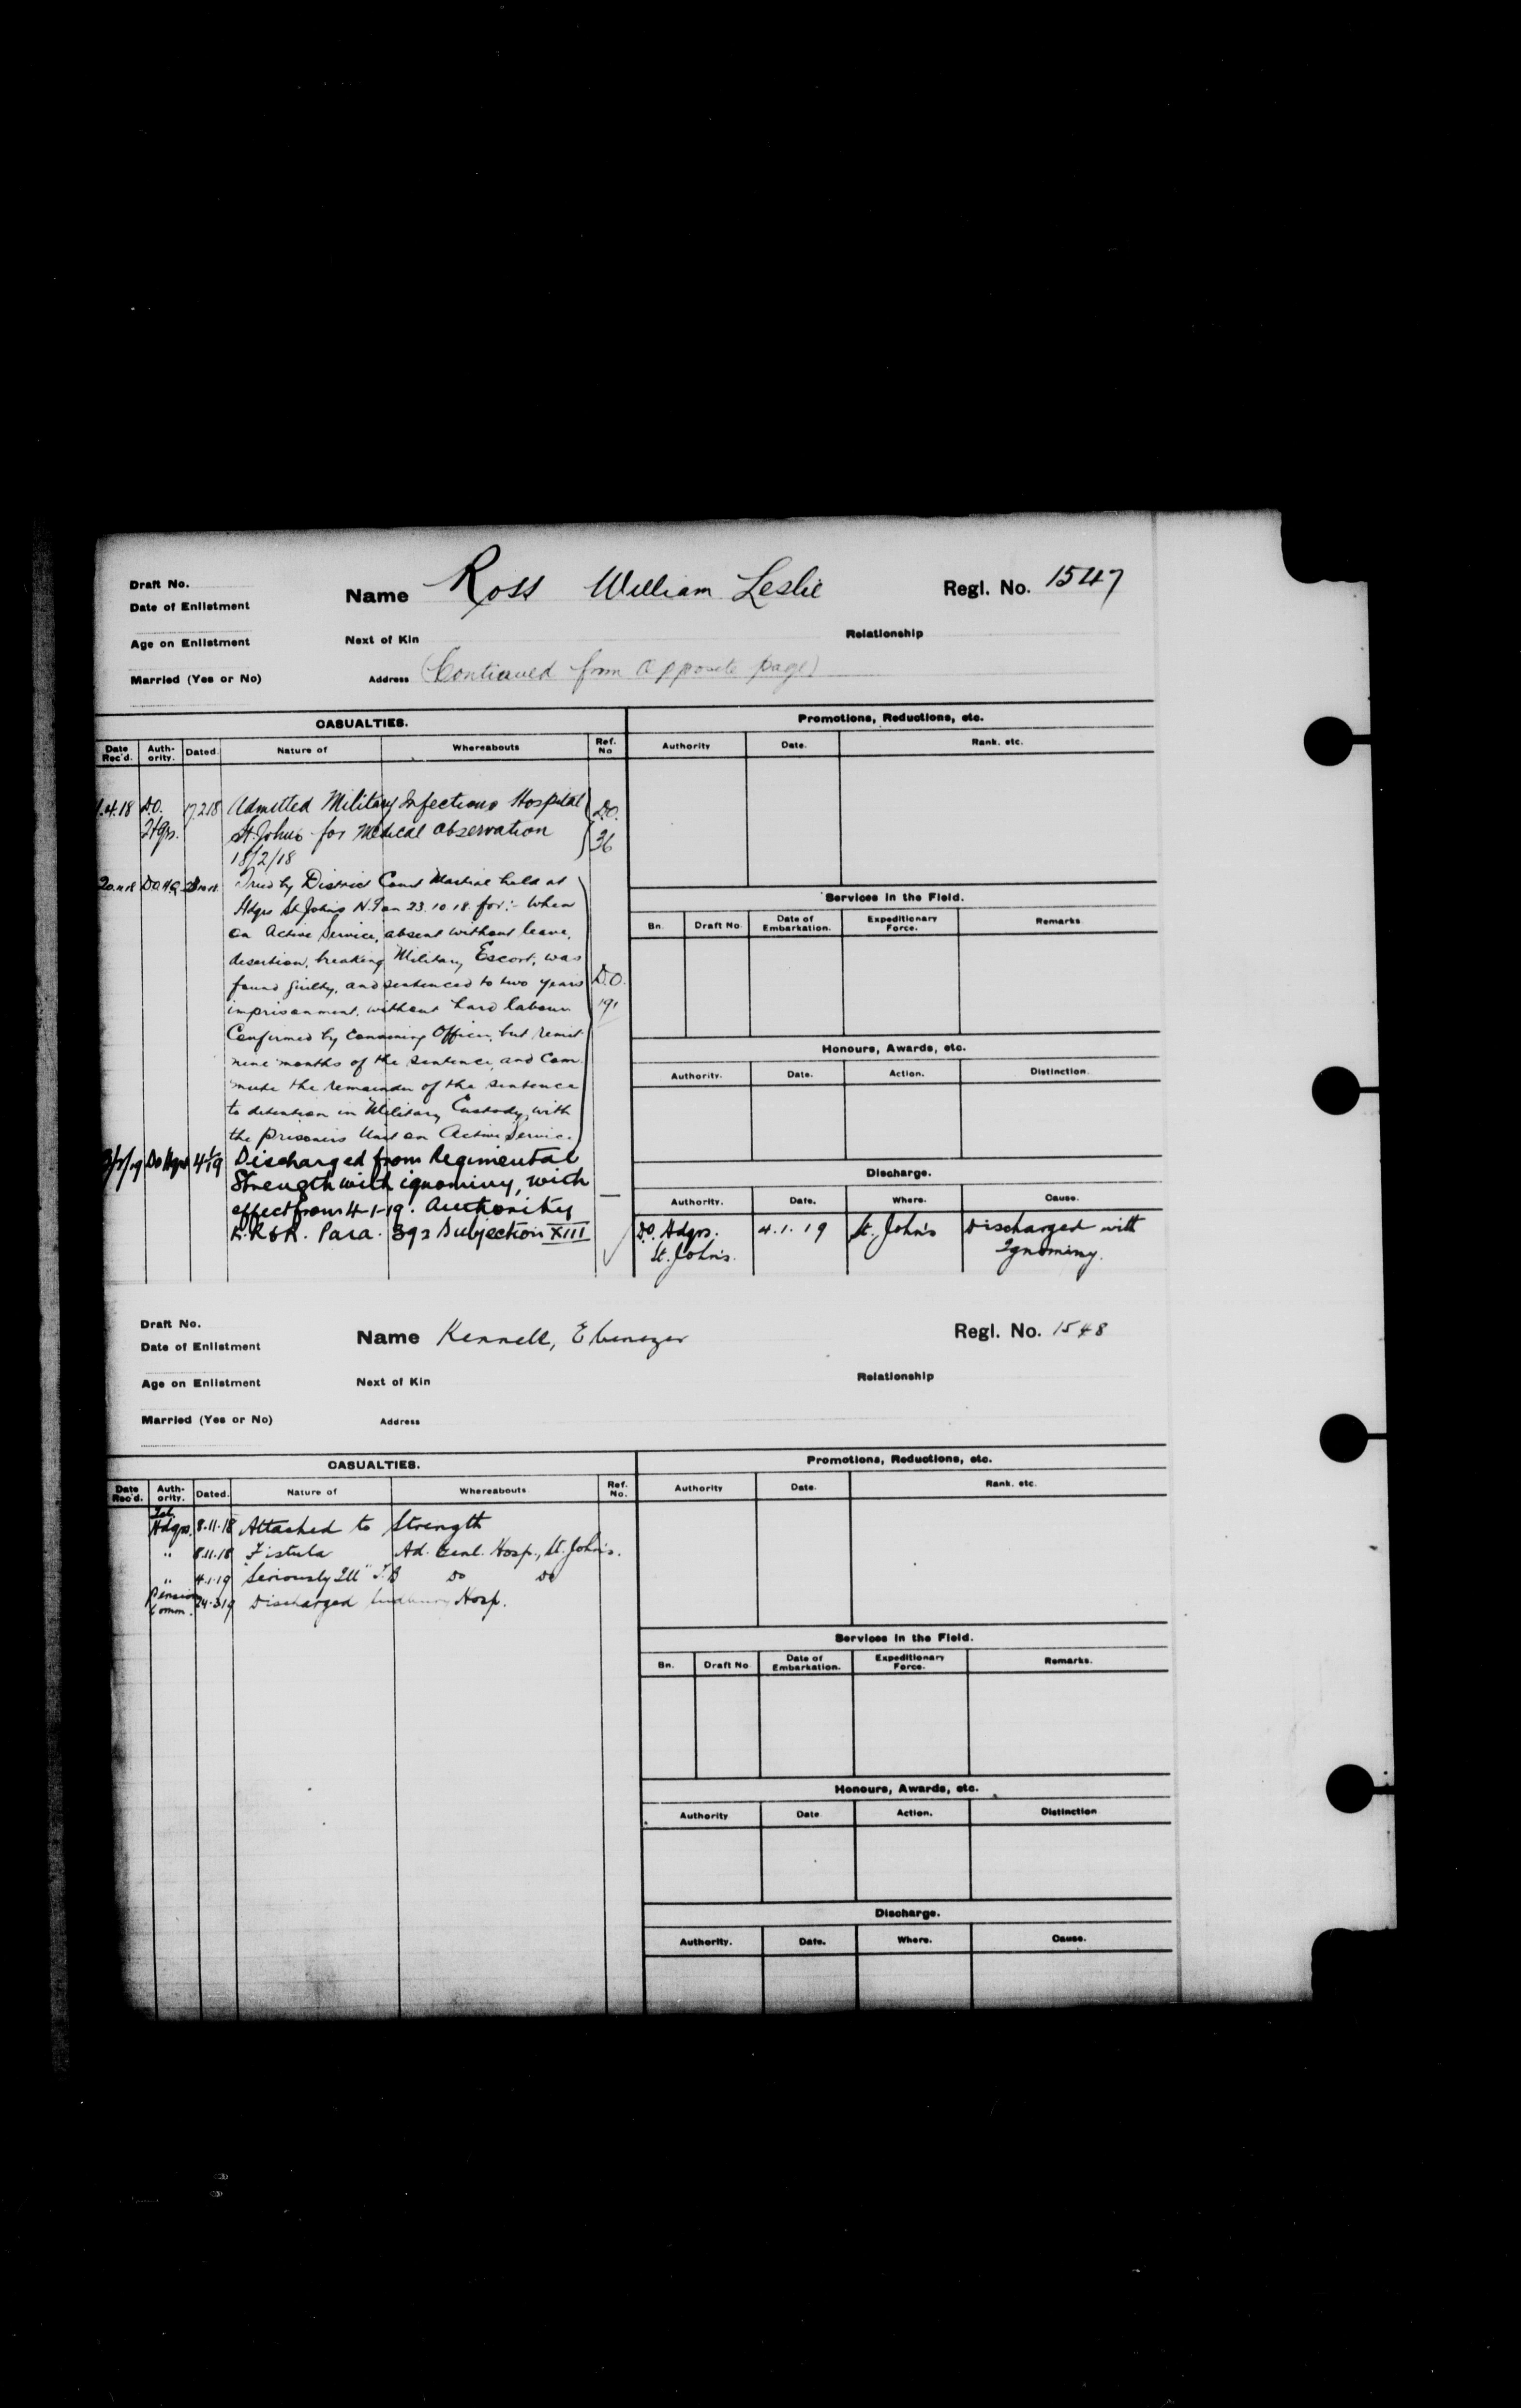 Draft No.
Date of Enlistment
Name Ross William Leslie
Regl. No. 1547
Age on Enlistment
Next of Kin
Relationship
Married (Yes or No)
Address (Continued from opposite page)
CASUALTIES.
Promotions, Reductions, etc.
Date Rec'd.
Auth-ority.
Dated.
Nature of
Whereabouts
Ref. No
Authority
Date.
Rank. etc.
1.4.18 D.O. Hqrs. 17.2.18 Admitted Military Infectious Hospital D.O. 36
St. Johns for Medical observation
18/2/18
20.11.18 D.O. H.Q. Tried by District Court Martial held at
Hdqrs St. John's N.F. on 23.10.18 for:- When
on Active Service, absent without leave,
desertion, breaking Military Escort, was
found guilty, and sentenced to two years D.O. 191
imprisonment, without hard labour
Confirmed by Convening Officer, but remit
nine months of the sentence, and Com
mute the remainder of the sentence
to detention in Military Custody, with
the prisoners Unit on Active Service.
DO Hqrs 4/1/19 Discharged from Regimental
Strength with ignominy, with
effect from 4-1-19. Authority
K.R&R. Para. 392 Subjection XIII
Services in the Field.
Bn.
Draft No
Date of Embarkation.
Expeditionary Force.
Remarks.
Honours, Awards, etc.
Authority.
Date.
Action.
Distinction.
Discharge.
Authority.
Date.
Where.
Cause.
D.O. Hdqrs. 4.1.19 St. John's Discharged with
St. John's. Ignominy.
Draft No.
Date of Enlistment
Name Kennell, Ebenezer
Regl. No. 1548
Age on Enlistment
Next of Kin
Relationship
Married (Yes or No)
Address
CASUALTIES.
Promotions, Reductions, etc.
Date Rec'd.
Auth-ority.
Dated.
Nature of
Whereabouts
Ref. No.
Authority
Date.
Rank. etc.
Hdqrs. 8.11.18 Attached to Strength
" 8.11.18 Fistula Ad. Genl. Hosp., St. John's.
" 4.1.19 "Seriously Ill" T.B Do Do
Pension Comm. 24.3.19 Discharged Hosp.
Services in the Field.
Bn.
Draft No
Date of Embarkation.
Expeditionary Force.
Remarks.
Honours, Awards, etc.
Authority
Date
Action.
Distinction
Discharge.
Authority.
Date.
Where.
Cause.